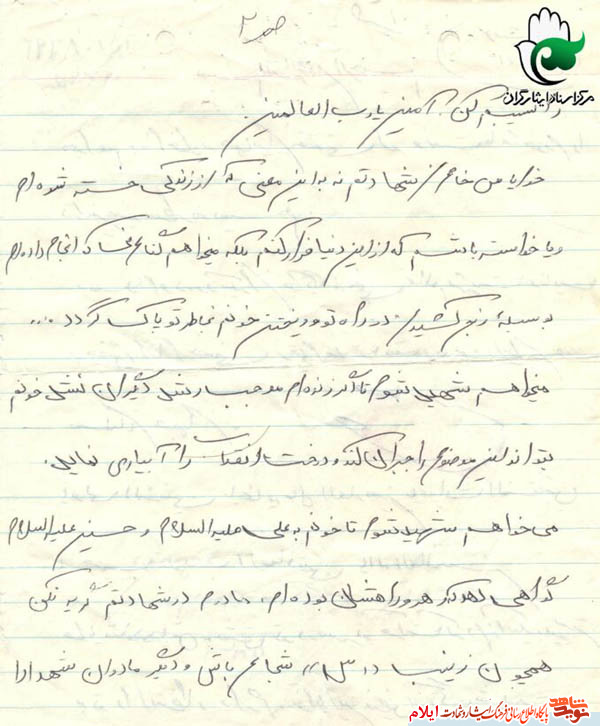 صفحه ۲
مرکز اسناد ایثارگران
را نصیبم کن. آمین یا رب العالمین.
خدایا من خواهم شهادتم نه به این معنی که از زندگی خسته شده‌ام
و یا خواسته باشم که از این دنیا فرار کنم بلکه میخواهم گناهانی که انجام داده‌ام
بوسیلهٔ رنج کشیدن در راه تو و ریختن خونم بخاطر تو پاک گردد ...
میخواهم شهید شوم تا اگر زنده‌ام موجب نشد دیگران خونم
بتواند این موضوع را جبران کند و درخت انقلاب را آبیاری نماید.
می‌خواهم شهید شوم تا خونم به علی علیه السلام و حسین علیه السلام
گواهی دهد که رهرو راهشان بوده‌ام، مادرم در شهادتم گریه نکن
همچون زینب شجاع باش و دیگر مادران شهدا را
نوید شاهد
پایگاه اطلاع رسانی فرهنگ ایثار و شهادت ایلام